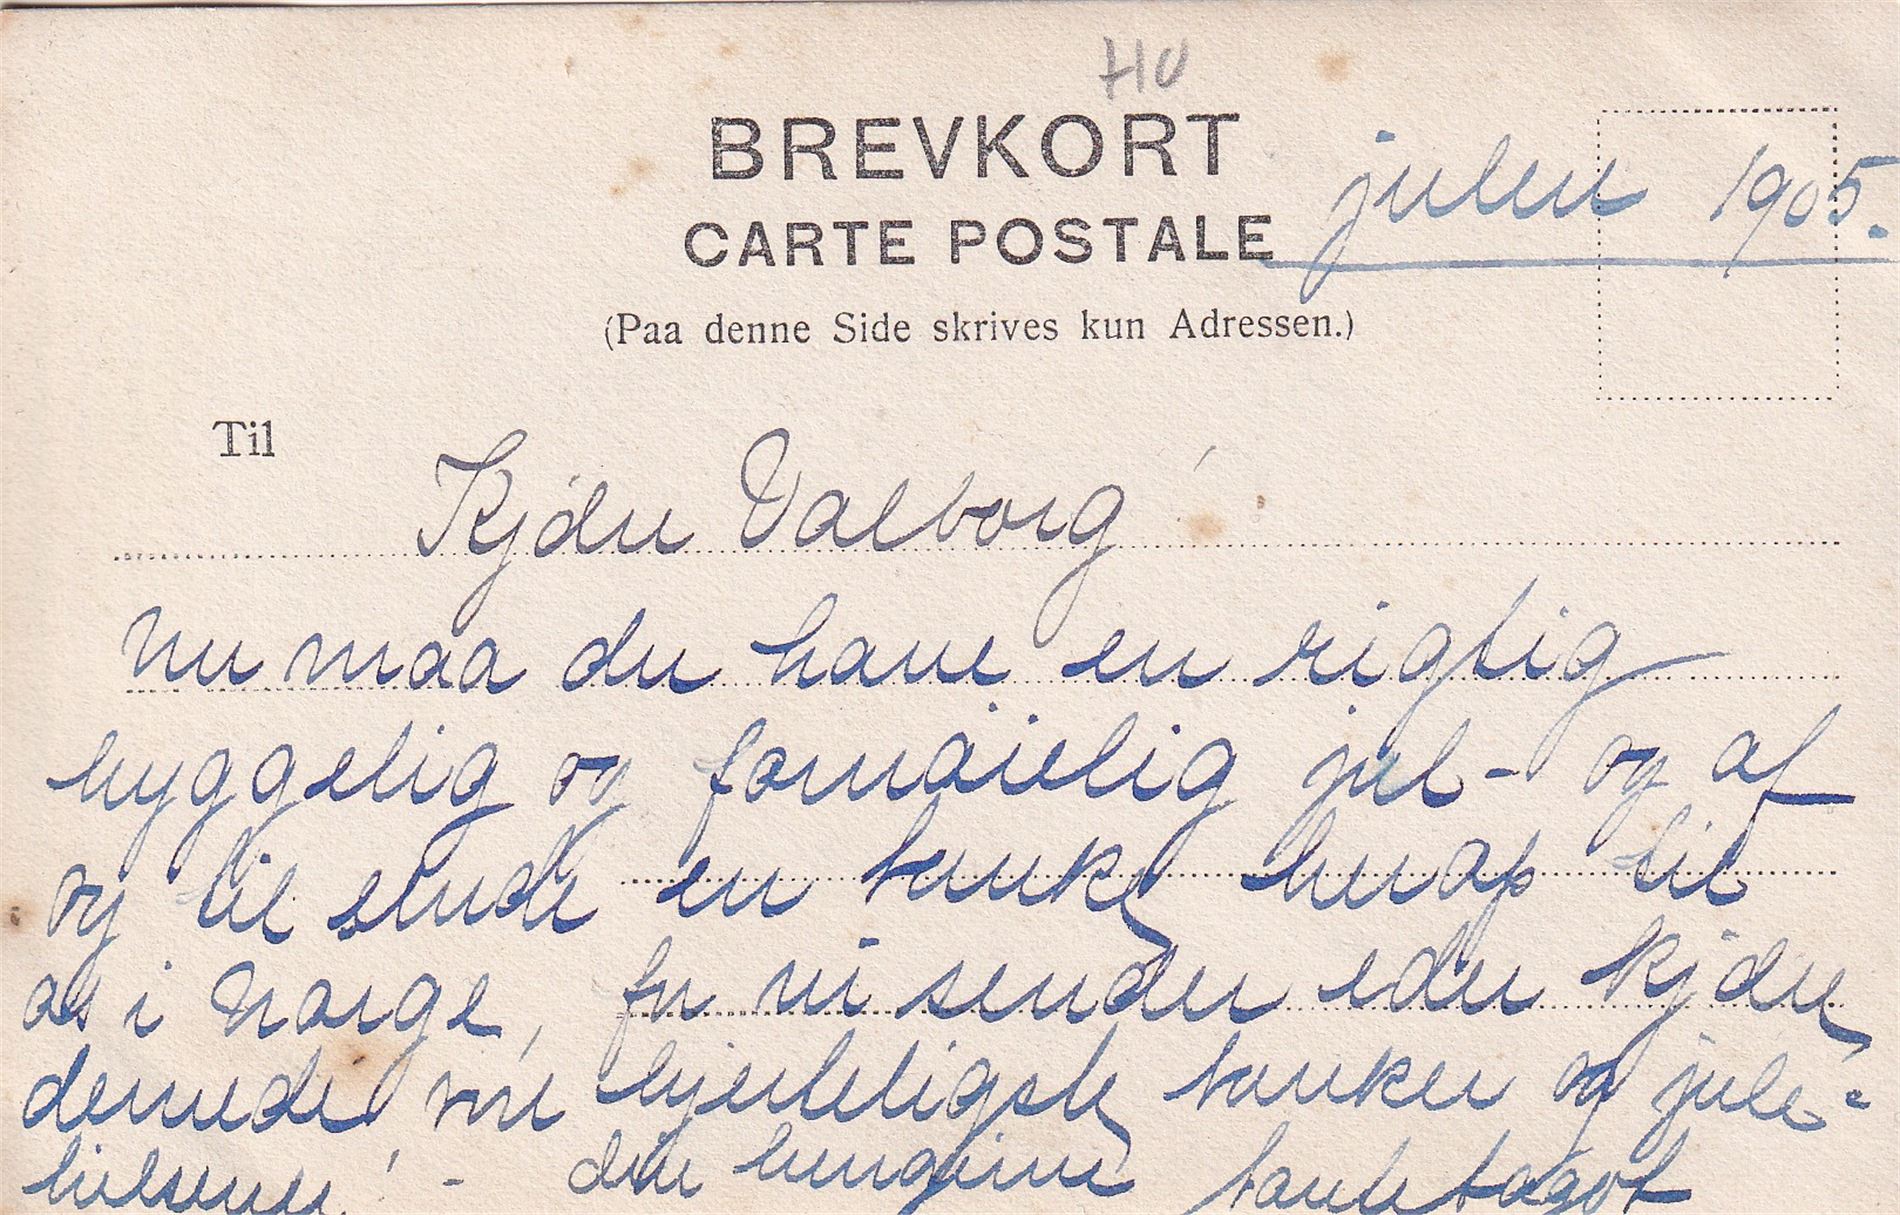 HU
BREVKORT
CARTE POSTALE
julen 1905.
(Paa denne Side skrives kun Adressen.)
Til
Kjære Valborg!
Nu maa du have en rigtig
hyggelig og fornøielig jul - og af
og til sende en tanke herop til
os i Norge, for vi sender eder kjære
dernede vore hjerteligste tanker og jule-
hilsener! - din hengivne tante